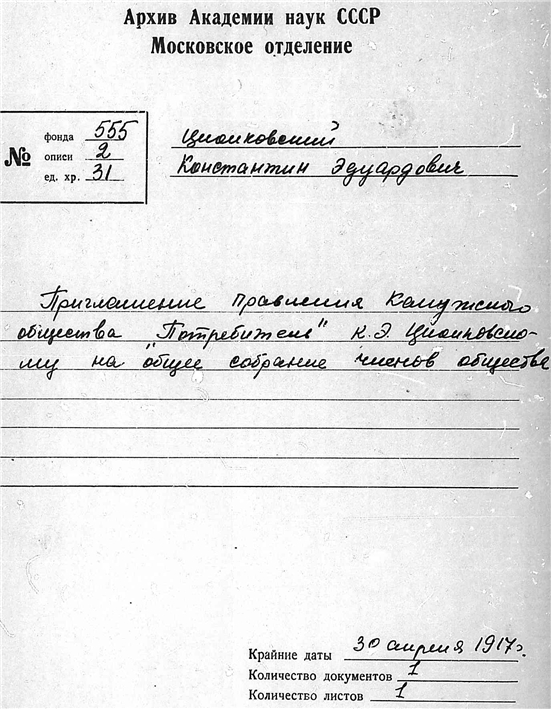 Архив Академии наук СССР
Московское отделение
№
фонда 555
описи 2
ед. хр. 31
Циолковский
Константин Эдуардович
Приглашение правления Калужского
общества "Потребитель" К.Э. Циолковско-
му на общее собрание членов общества
Крайние даты 30 апреля 1917г.
Количество документов 1
Количество листов 1